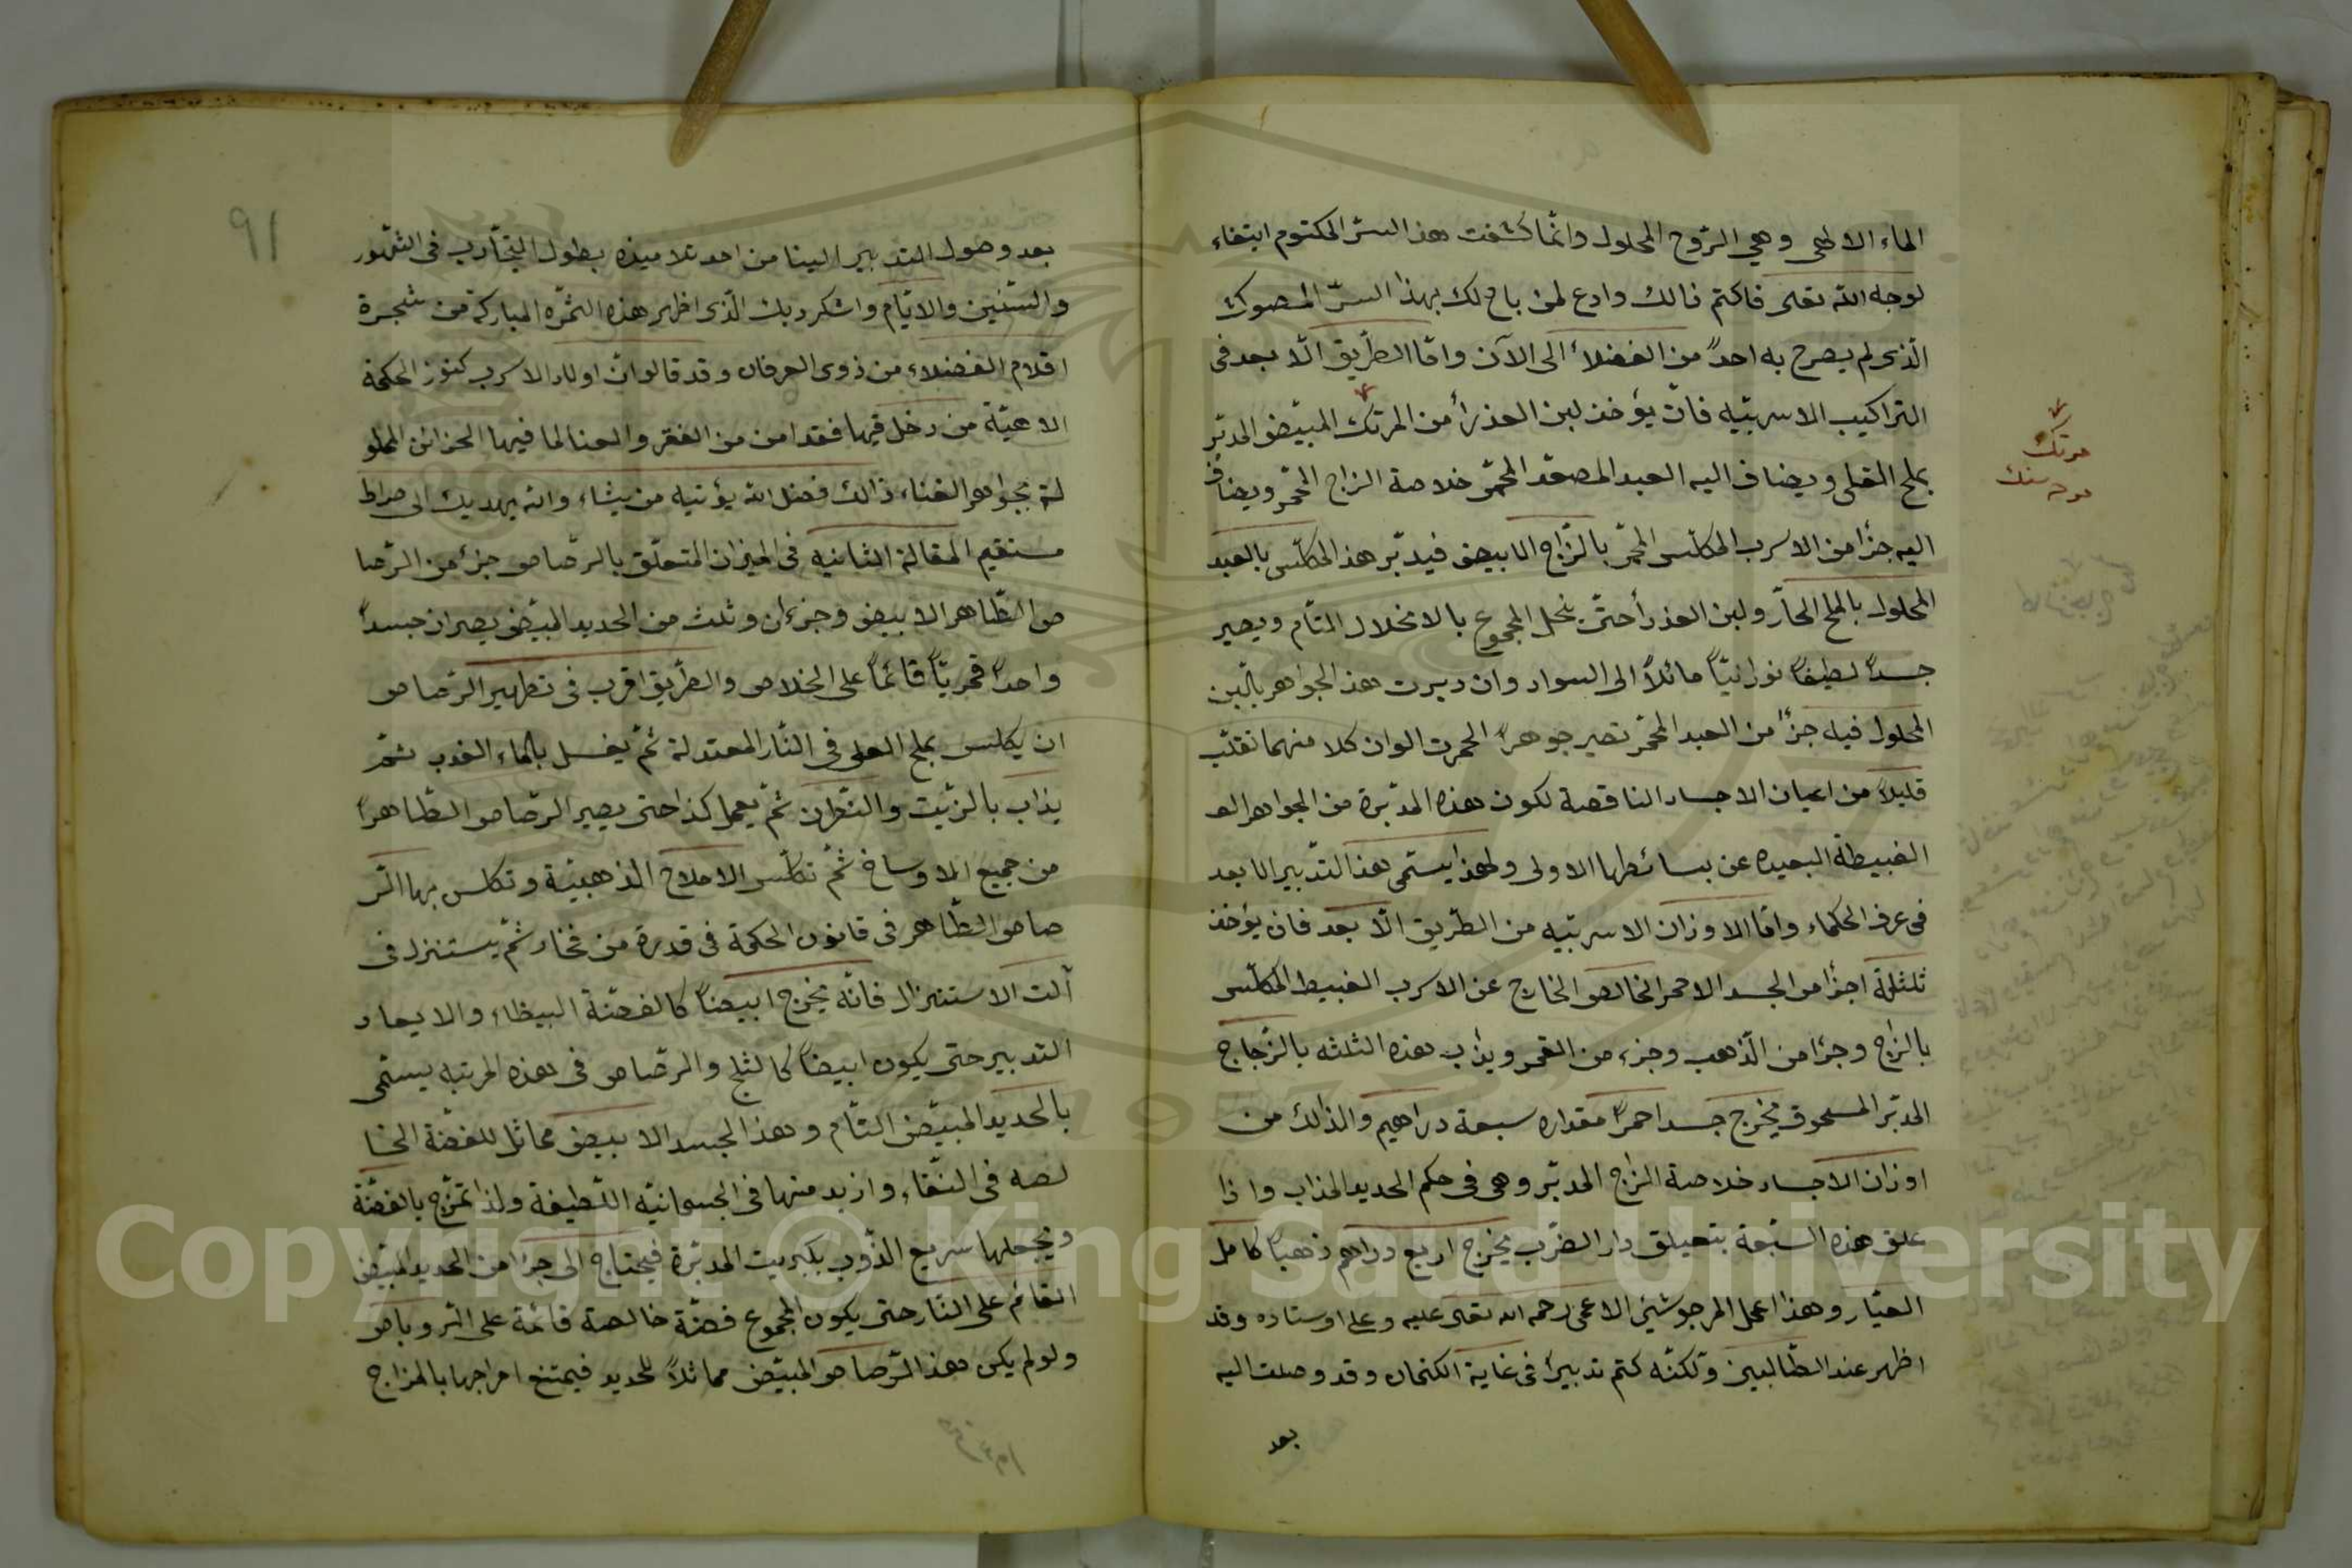 الماء الالهى وهى الرّوح المحلول وانّما كشفت هذا السرّ المكتوم ابتغاء
لوجه الله تعلى فاكتم ذالك وادع لمن باح لك بهذا السرّ المصون
الّذى لم يصرح به احدً من الفضلاء الى الآن وامّا الطّريق الّا بعد فى
التراكيب الاسربيّه فان يؤخذ لبن العذرأ من المرتك المبيّض المدبّر
بملح القلى ويضاف اليه العبد المصعّد المحمّر خلاصة الزاج المحمّر ويضاف
اليه جزأ من الاسرب المكلّس المحمّر بالزّاج الابيض فيدبّر هذا المكلّس بالعبد
المحلول بالملح الحارّ ولبن العذرأ حتّى ينحل المجموع بالانحلال التام ويصير
جسداً لطيفاً نورانيّاً مائلاً الى السواد وان دبرت هذا الجواهر باللّبن
المحلول فيه جزأ من العبد المحمّر تصير جوهراً احمرت الوان كلا منهما تقلّب
قليلاً من اعيان الاجساد الناقصة لكون هذه المدبّرة من الجواهر الغـ
الغبيطة البعيده عن بسائطها الاولى ولهذا يسمّى هذا التّدبير الابعد
فى عرف الحكماء وامّا الاوزان الاسربيّه من الطّريق الّا بعد فان يؤخذ
ثلثلة اجزأ من الجسد الاحمر الخالص الخارج عن الاسرب الغبيط المكلّس
بالزاج وجزأ من الّذهب وجزء من القمر ويذاب هذه الثلثه بالزّجاج
المدبّر المسحوق يخرج جسدا حمراً مقداره سبعة دراهيم والذالك من
اوزان الاجساد خلاصة الزاج المدبّر وهى فى حكم الحديد المذاب واذا
علق هذه السّبعة بتعيلق دار الضرب يخرج اربع دراهم ذهباً كامل
العيّار وهذا اعمل المرجوشئ الاعمى رحمه الله تعلى عليه وعلى اوستاده وقد
اظهر عند الطّالبين ولكنّه كتم تدبيراً فى غاية الكتمان وقد وصلت اليه
بعد
مرتك
مردسنك
91
بعد وصول التدبير الينا من احد تلاميذه بطول التجارب فى الشّهور
والسّنين والايّام واشكر ربك الّذى اظهر هذه الثمره المباركة من شجرة
اقلام الفضلاء من ذوى العرفان وقد قالوا انّ اولاد الاسرب كنوز الحكمة
الاهيّة من دخل فيها فقد امن من الفقر والعنا لما فيها الخزائن المملو
لة بجواهر الغناء ذالك فضل الله يؤتيه من يشاء والله يهديك الى صراط
مستقيم المقالة الثانيه فى الميزان المتعلّق بالرّصاص جزء من الرّصا
ص الطّاهر الابيض وجزءان وثلث من الحديد المبيّض يصيران جسداً
واحداً قمريّاً قائماً على الخلاص والطّريق اقرب فى تطهير الرّصاص
ان يكلس بملح القلى فى النّار المعتدلة ثمّ يغسل بالماء العذب ثمّ
يذاب بالزّيت والنّطرن ثمّ يعمل كذا حتى يصير الرّصاص الطّاهراً
من جميع الاوساخ ثمّ تكلّس الاملاح الذهبيّة وتكلس بها الرّ
صاص الطّاهر فى قانون الحكمة فى قدرة من فخار ثمّ يستنزل فى
آلت الاستنزال فانّه يخرج ابيضاً كالفضّة البيظاء والا يعاد
التدبير حتى يكون ابيضاً كالثلج والرّصاص فى هذه المرتبه يسمّى
بالحديد المبيّض التّام وهذا الجسد الابيض مماثل للفضّة الخا
لصه فى النّقاء وازيد منها فى الجسمانيّه اللّطيفة ولذا تمزّج بالفضّة
ويجعلها سريع الذّوب بكبريت المدبّرة فيحتاج الى جزأ من الحديد المبيّض
القائم على النّار حتى يكون المجموع فضّة خالصة قائمة على الرّوباص
ولولم يكن هذا الرّصاص المبيّض مماثلاً للحديد فيمتنع امراجها بالمزاج